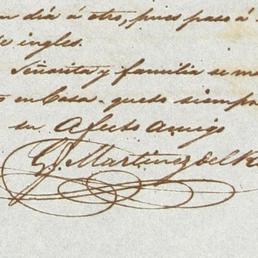 un dia á otro, pues pasó á
de ingles.
Señorita y familia se me
en Casa. quedo siempre
su Afecto Amigo
G. Martinez del R